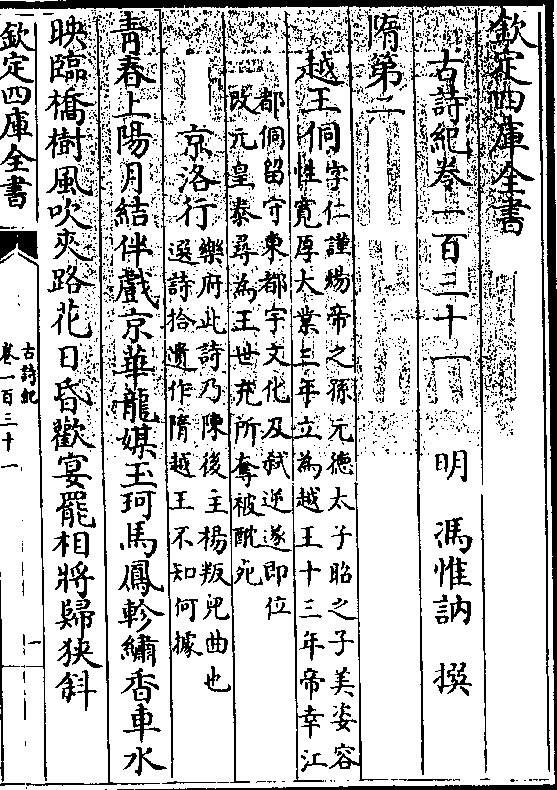 欽定四庫全書
古詩紀卷一百三十一　明　馮惟訥　撰
隋第二
越王侗
字仁謹煬帝之孫元德太子昭之子美姿容
性寬厚大業三年立為越王十三年帝幸江
都侗留守東都宇文化及弑逆遂即位
改元皇泰尋為王世充所奪被酖死
京洛行
樂府此詩乃陳後主楊叛兒曲也
選詩拾遺作隋越王不知何據
青春上陽月結伴戲京華龍媒玉珂馬鳳軫繡香車水
映臨橋樹風吹夾路花日昏歡宴罷相將歸狹斜
欽定四庫全書
古詩紀
卷一百三十一
一